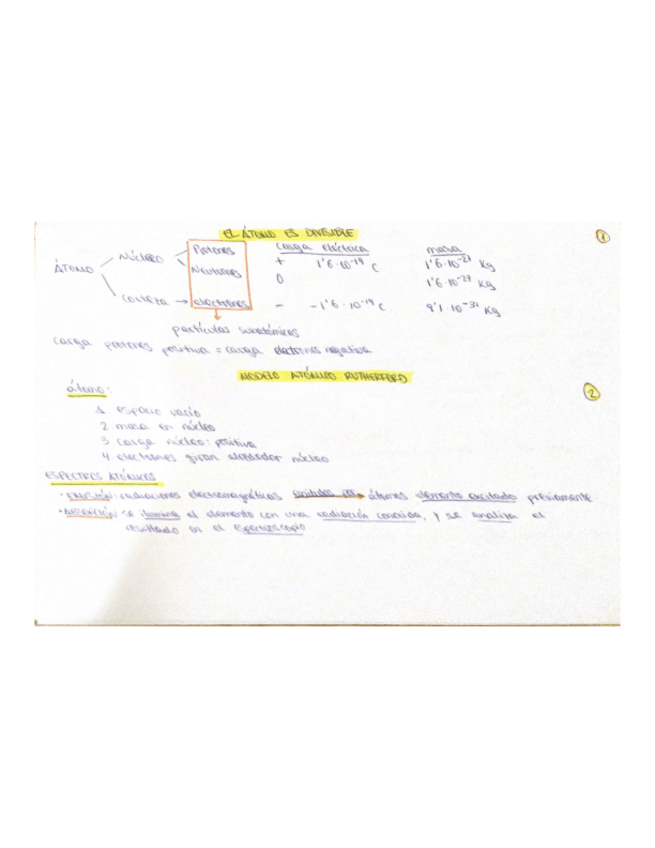 EL ÁTOMO ES DIVISIBLE
1
carga eléctrica masa
ÁTOMO Núcleo Protones + 1'6·10⁻¹⁹ C 1'6·10⁻²⁷ Kg
Neutrones 0 1'6·10⁻²⁷ Kg
Corteza → electrones - -1'6·10⁻¹⁹ C 9'1·10⁻³¹ Kg
partículas subatómicas
carga protones positiva = carga electrones negativa
MODELO ATÓMICO RUTHERFORD
2
átomo:
1. espacio vacío
2. masa en núcleo
3 carga núcleo: positiva
4. electrones giran alrededor núcleo
ESPECTROS ATÓMICOS
· EMISIÓN: radiaciones electromagnéticas emitidas por átomos elemento excitado previamente
· ABSORCIÓN se ilumina el elemento con una radiación conocida, y se analiza el
resultado en el espectroscopio